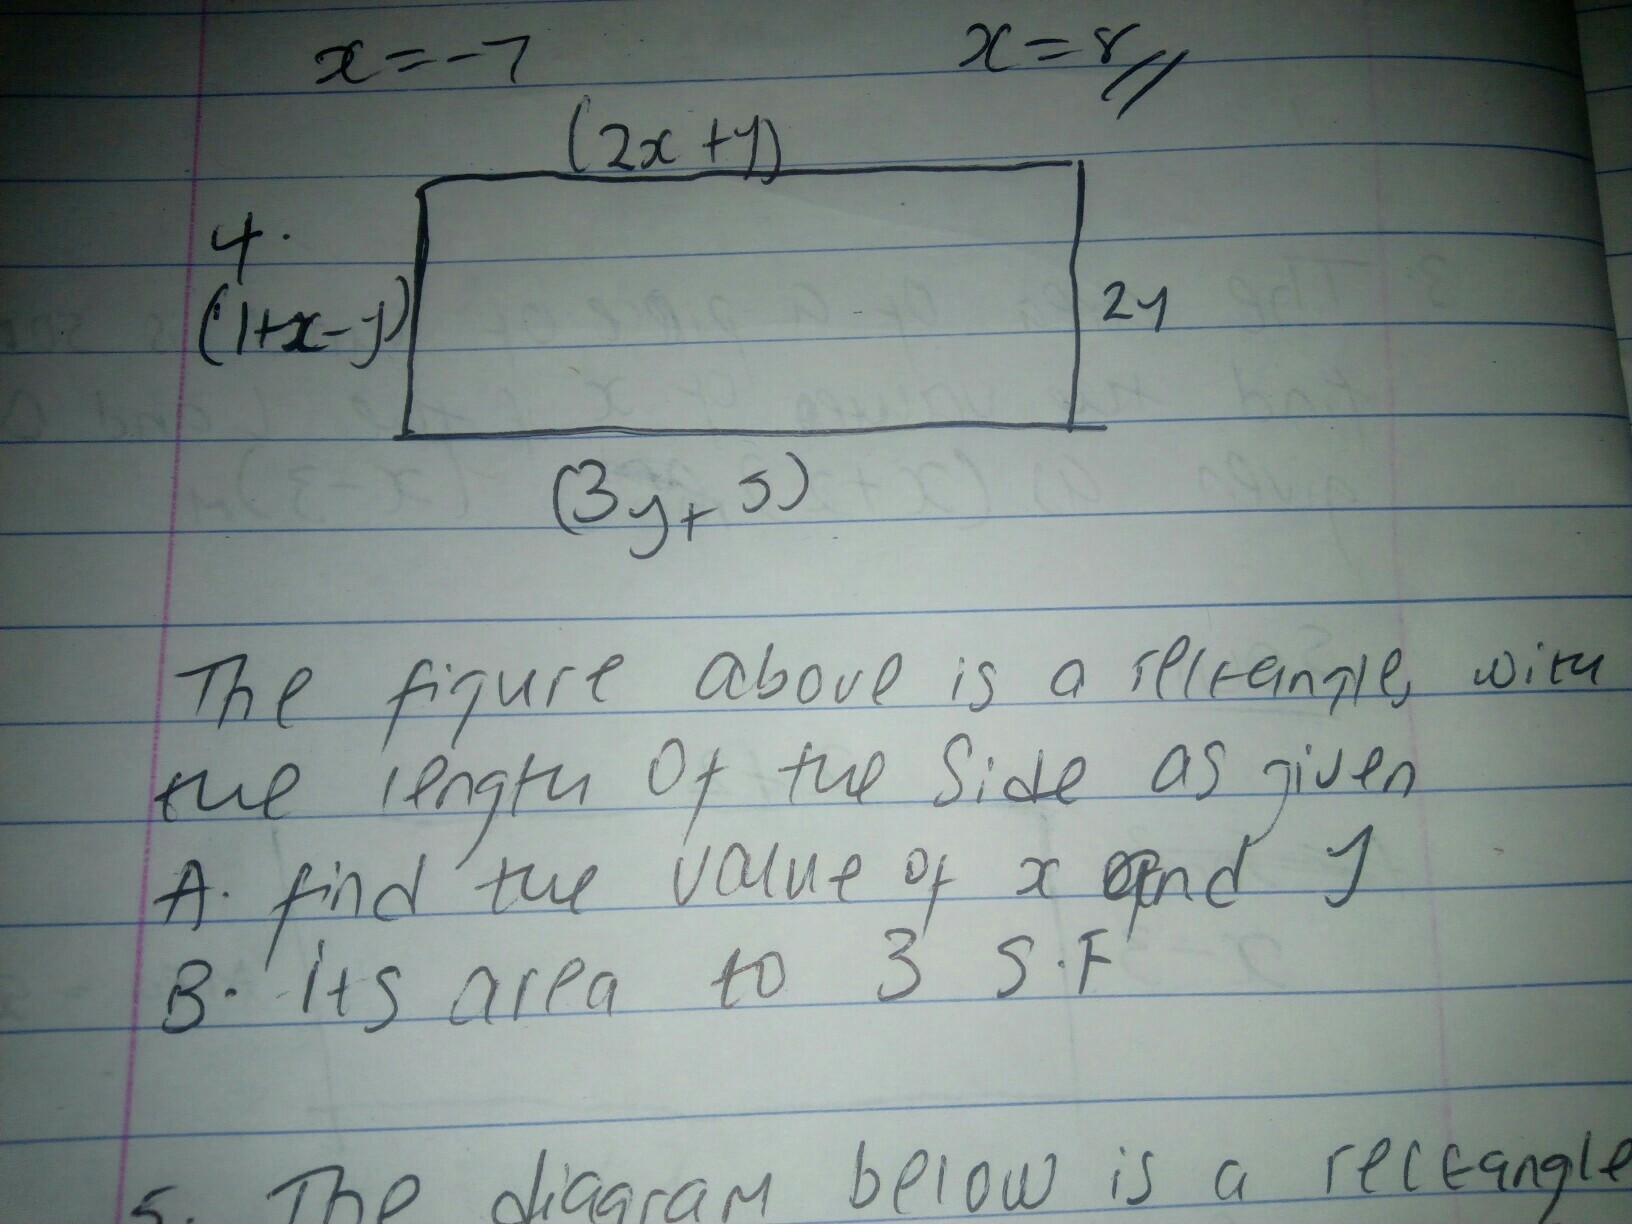 x=-7 x=8//
(2x+y)
4.
(1+x-y) 2y
(3y+5)
The figure above is a rectangle, with
the length of the side as given
A. find the value of x and y
B. its area to 3 S.F
5. The diagram below is a rectangle